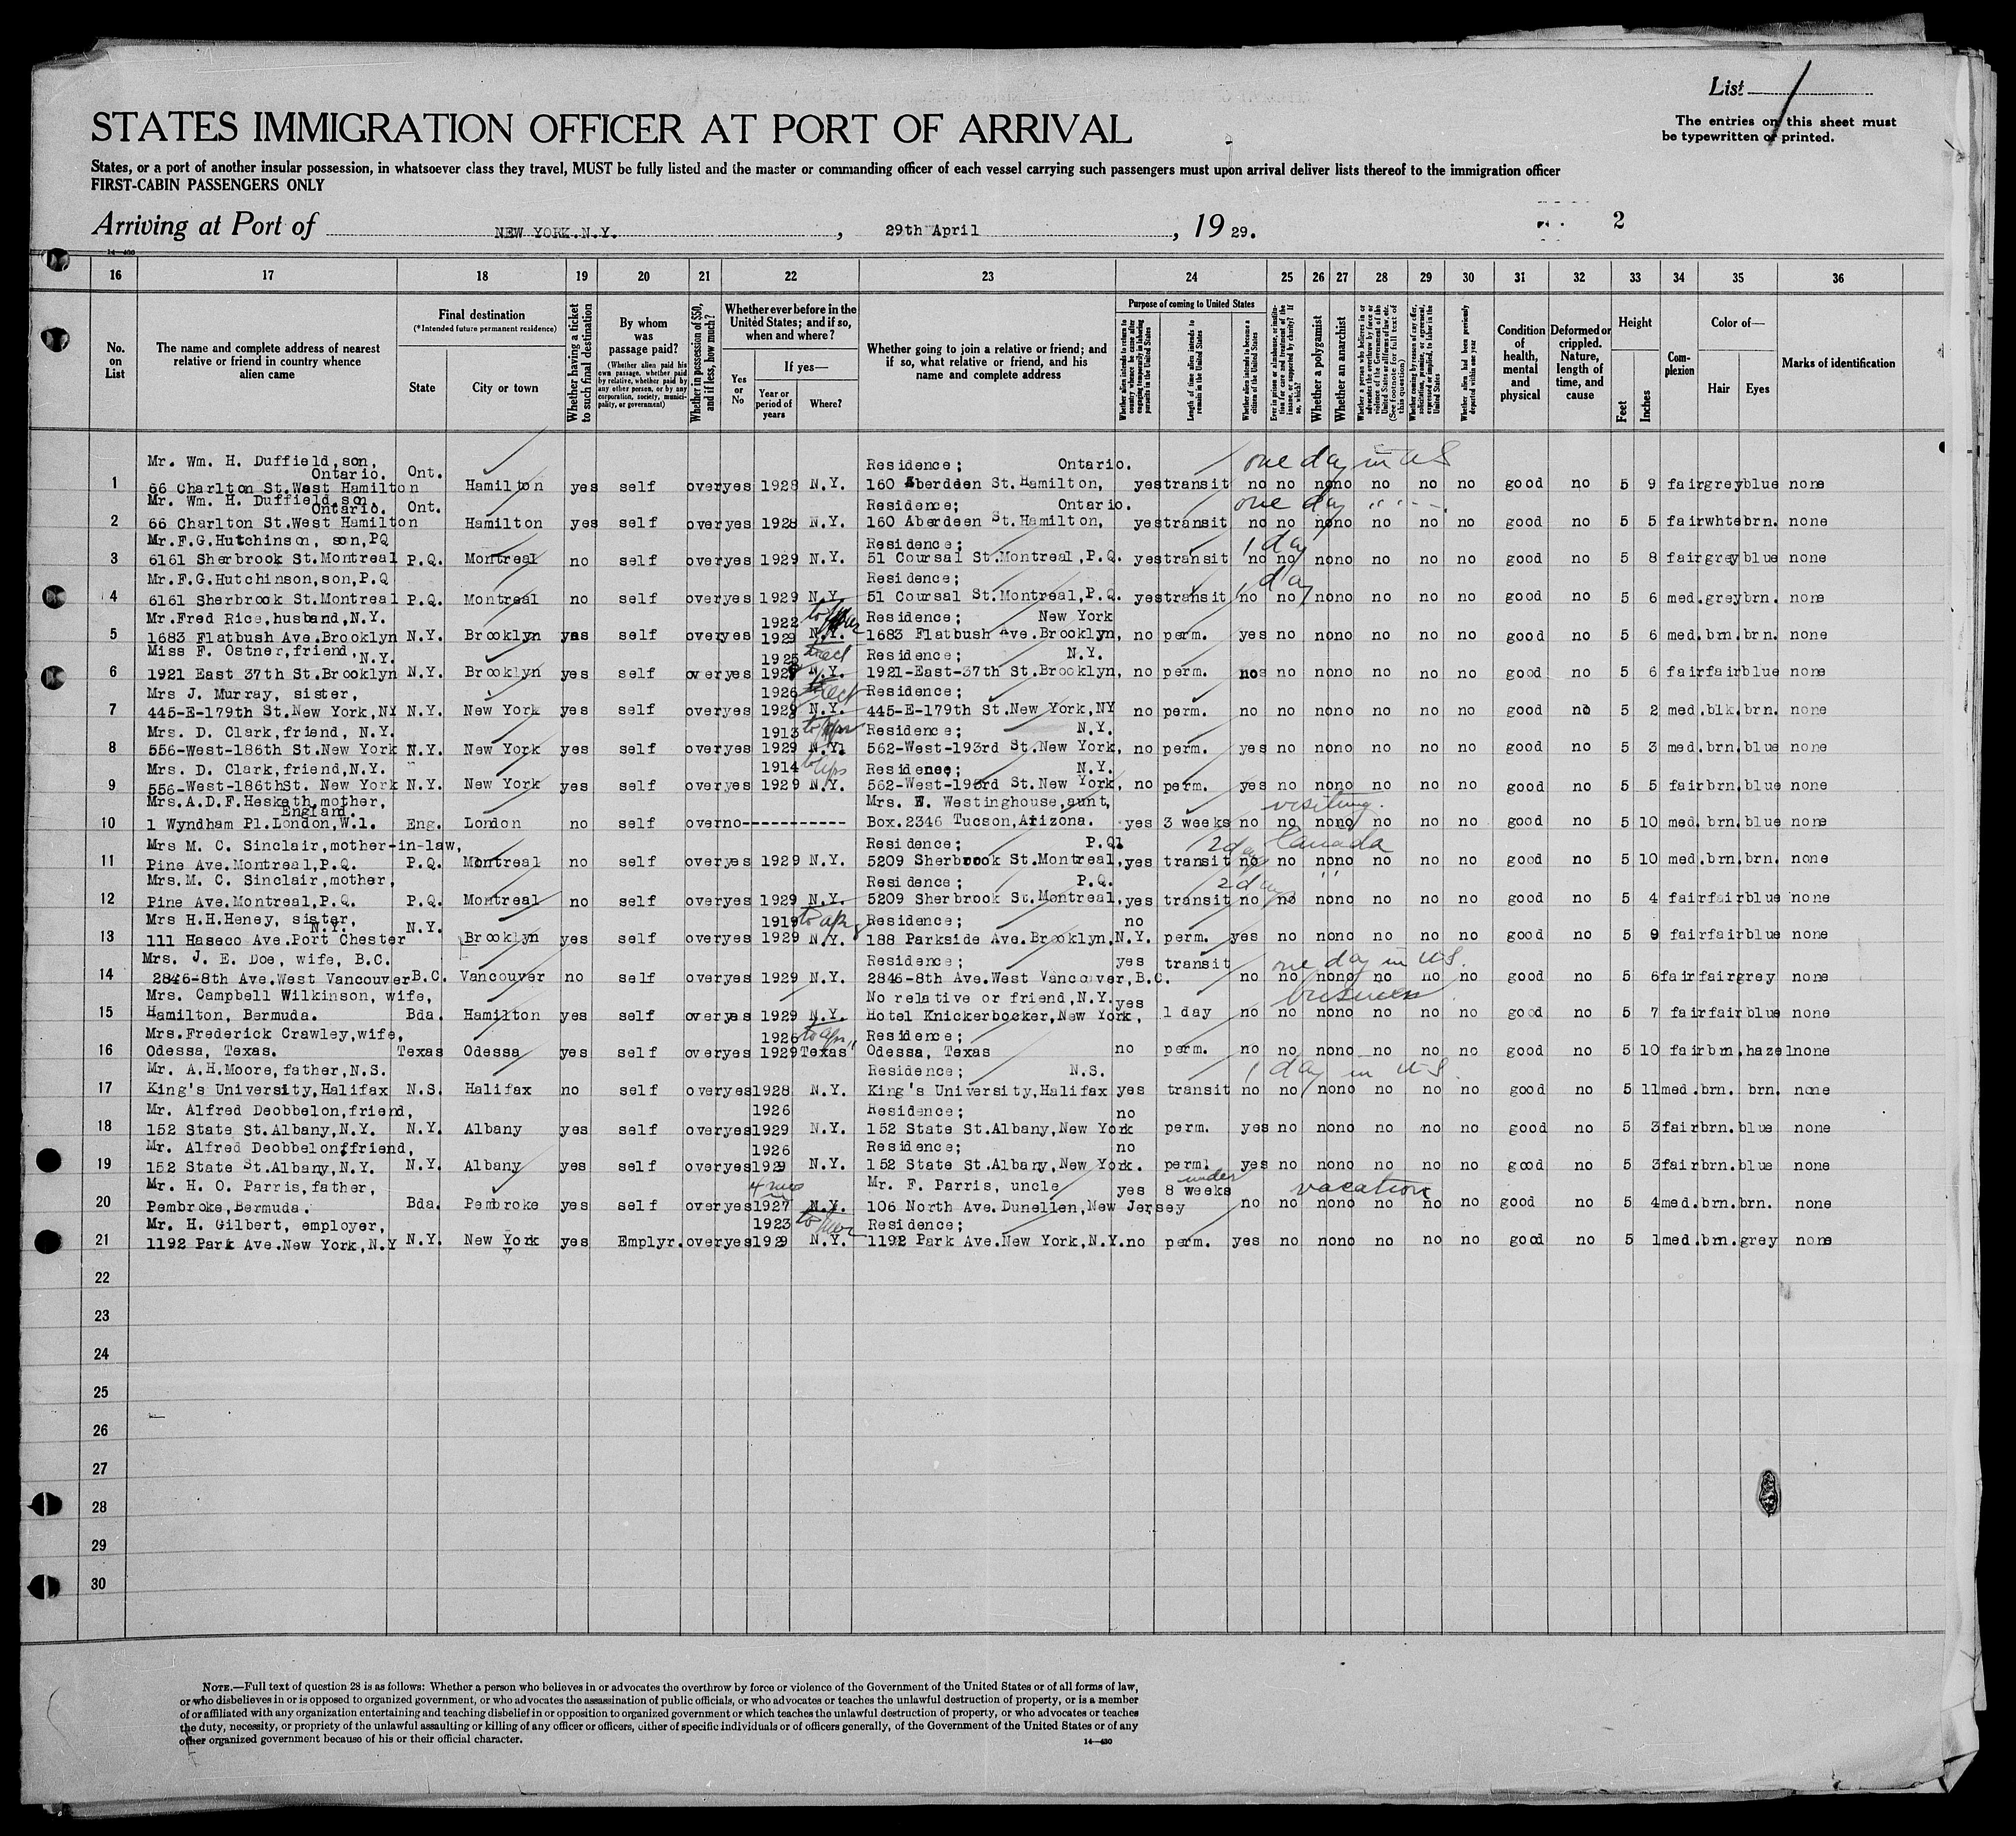 List 1
STATES IMMIGRATION OFFICER AT PORT OF ARRIVAL
The entries on this sheet must
be typewritten or printed.
States, or a port of another insular possession, in whatsoever class they travel, MUST be fully listed and the master or commanding officer of each vessel carrying such passengers must upon arrival deliver lists thereof to the immigration officer
FIRST-CABIN PASSENGERS ONLY
Arriving at Port of NEW YORK.N.Y. , 29th April , 19 29. 2
14—430
16 17 18 19 20 21 22 23 24 25 26 27 28 29 30 31 32 33 34 35 36
No. on List
The name and complete address of nearest relative or friend in country whence alien came
Final destination
(*Intended future permanent residence)
State City or town
Whether having a ticket to such final destination
By whom was passage paid?
(Whether alien paid his own passage, whether paid by relative, whether paid by any other person, or by any corporation, society, municipality, or government)
Whether in possession of $50, and if less, how much?
Whether ever before in the United States; and if so, when and where?
Yes or No
If yes—
Year or period of years Where?
Whether going to join a relative or friend; and if so, what relative or friend, and his name and complete address
Purpose of coming to United States
Whether alien intends to return to country whence he came after engaging temporarily in laboring pursuits in the United States
Length of time alien intends to remain in the United States
Whether alien intends to become a citizen of the United States
Ever in prison or almshouse, or institution for care and treatment of the insane, or supported by charity? If so, which?
Whether a polygamist
Whether an anarchist
Whether a person who believes in or advocates the overthrow by force or violence of the Government of the United States or all forms of law, etc. (See footnote for full text of this question)
Whether coming by reason of any offer, solicitation, promise, or agreement, expressed or implied, to labor in the United States
Whether alien had been previously deported within one year
Condition of health, mental and physical
Deformed or crippled. Nature, length of time, and cause
Height
Feet Inches
Complexion
Color of—
Hair Eyes
Marks of identification
Mr. Wm. H. Duffield, son, Ontario. Ont. Residence; Ontario. one day in US
1 66 Charlton St.West Hamilton Hamilton yes self over yes 1928 N.Y. 160 Aberdeen St.Hamilton, yes transit no no no no no no no good no 5 9 fair grey blue none
Mr. Wm. H. Duffield, son, Ontario. Ont. Residence; Ontario. one day
2 66 Charlton St.West Hamilton Hamilton yes self over yes 1928 N.Y. 160 Aberdeen St.Hamilton, yes transit no no no no no no no good no 5 5 fair whte brn. none
Mr.F.G.Hutchinson, son,PQ Residence; 1 day
3 6161 Sherbrook St.Montreal P.Q. Montreal no self over yes 1929 N.Y. 51 Coursal St.Montreal,P.Q. yes transit no no no no no no no good no 5 8 fair grey blue none
Mr.F.G.Hutchinson,son,P.Q Residence; 1 day
4 6161 Sherbrook St.Montreal P.Q. Montreal no self over yes 1929 N.Y. 51 Coursal St.Montreal,P.Q. yes transit no no no no no no no good no 5 6 med. grey brn. none
Mr.Fred Rice,husband,N.Y. 1922 Residence; New York
5 1683 Flatbush Ave.Brooklyn N.Y. Brooklyn yes self over yes 1929 N.Y. 1683 Flatbush Ave.Brooklyn, no perm. yes no no no no no no good no 5 6 med. brn. brn. none
Miss F. Ostner,friend,N.Y. 1925 Residence; N.Y.
6 1921 East 37th St.Brooklyn N.Y. Brooklyn yes self over yes 1929 N.Y. 1921-East-37th St.Brooklyn, no perm. no no no no no no good no 5 6 fair fair blue none
Mrs J. Murray, sister, 1926 Residence;
7 445-E-179th St.New York,NY N.Y. New York yes self over yes 1929 N.Y. 445-E-179th St.New York,NY no perm. no no no no no no no good no 5 2 med. blk. brn. none
Mrs. D. Clark,friend, N.Y. 1913 Residence; N.Y.
8 556-West-186th St.New York N.Y. New York yes self over yes 1929 N.Y. 562-West-193rd St.New York, no perm. yes no no no no no no good no 5 3 med. brn. blue none
Mrs. D. Clark,friend,N.Y. 1914 Residence; N.Y.
9 556-West-186thSt. New York N.Y. New York yes self over yes 1929 N.Y. 562-West-193rd St.New York, no perm. yes no no no no no no good no 5 5 fair brn. blue none
Mrs.A.D.F.Hesketh,mother, England. Mrs. W. Westinghouse,aunt, visiting.
10 1 Wyndham Pl.London,W.1. Eng. London no self over no----------- Box.2346 Tucson,Arizona. yes 3 weeks no no no no no no no good no 5 10 med. brn. blue none
Mrs M. C. Sinclair,mother-in-law, Residence; P.Q. 2 days Canada
11 Pine Ave.Montreal,P.Q. P.Q. Montreal no self over yes 1929 N.Y. 5209 Sherbrook St.Montreal, yes transit no no no no no no no good no 5 10 med. brn. brn. none
Mrs.M. C. Sinclair,mother, Residence; P.Q. 2 days " "
12 Pine Ave.Montreal,P.Q. P.Q. Montreal no self over yes 1929 N.Y. 5209 Sherbrook St.Montreal, yes transit no no no no no no no good no 5 4 fair fair blue none
Mrs H.H.Heney, sister, N.Y. N.Y. 1919 Residence; no
13 111 Haseco Ave.Port Chester Brooklyn yes self over yes 1929 N.Y. 188 Parkside Ave.Brooklyn,N.Y. perm. yes no no no no no no good no 5 9 fair fair blue none
Mrs. J. E. Doe, wife, B.C. Residence; yes transit one day in US.
14 2846-8th Ave.West Vancouver B.C. Vancouver no self over yes 1929 N.Y. 2846-8th Ave.West Vancouver,B.C. no no no no no no no good no 5 6 fair fair grey none
Mrs. Campbell Wilkinson, wife, No relative or friend,N.Y. yes business
15 Hamilton, Bermuda. Bda. Hamilton yes self over yes 1929 N.Y. Hotel Knickerbocker,New York, 1 day no no no no no no no good no 5 7 fair fair blue none
Mrs.Frederick Crawley,wife, 1926 Residence;
16 Odessa, Texas. Texas Odessa yes self over yes 1929 Texas Odessa, Texas no perm. no no no no no no no good no 5 10 fair brn. hazel none
Mr. A.H.Moore,father,N.S. Residence; N.S. 1 day in US.
17 King's University,Halifax N.S. Halifax no self over yes 1928 N.Y. King's University,Halifax yes transit no no no no no no no good no 5 11 med. brn. brn. none
Mr. Alfred Deobbelon,friend, 1926 Residence; no
18 152 State St.Albany,N.Y. N.Y. Albany yes self over yes 1929 N.Y. 152 State St.Albany,New York perm. yes no no no no no no good no 5 3 fair brn. blue none
Mr. Alfred Deobbelon,friend, 1926 Residence; no
19 152 State St.Albany,N.Y. N.Y. Albany yes self over yes 1929 N.Y. 152 State St.Albany,New York. perm. yes no no no no no no good no 5 3 fair brn. blue none
Mr. H. O. Parris,father, 4 mos Mr. F. Parris, uncle yes under 8 weeks vacation
20 Pembroke,Bermuda. Bda. Pembroke yes self over yes 1927 N.Y. 106 North Ave.Dunellen,New Jersey no no no no no no no good no 5 4 med. brn. brn. none
Mr. H. Gilbert, employer, 1923 Residence;
21 1192 Park Ave.New York,N.Y N.Y. New York yes Emplyr. over yes 1929 N.Y. 1192 Park Ave.New York,N.Y. no perm. yes no no no no no no good no 5 1 med. brn. grey none
22
23
24
25
26
27
28
29
30
NOTE.—Full text of question 28 is as follows: Whether a person who believes in or advocates the overthrow by force or violence of the Government of the United States or of all forms of law,
or who disbelieves in or is opposed to organized government, or who advocates the assassination of public officials, or who advocates or teaches the unlawful destruction of property, or is a member
of or affiliated with any organization entertaining and teaching disbelief in or opposition to organized government or which teaches the unlawful destruction of property, or who advocates or teaches
the duty, necessity, or propriety of the unlawful assaulting or killing of any officer or officers, either of specific individuals or of officers generally, of the Government of the United States or of any
other organized government because of his or their official character.
14—430